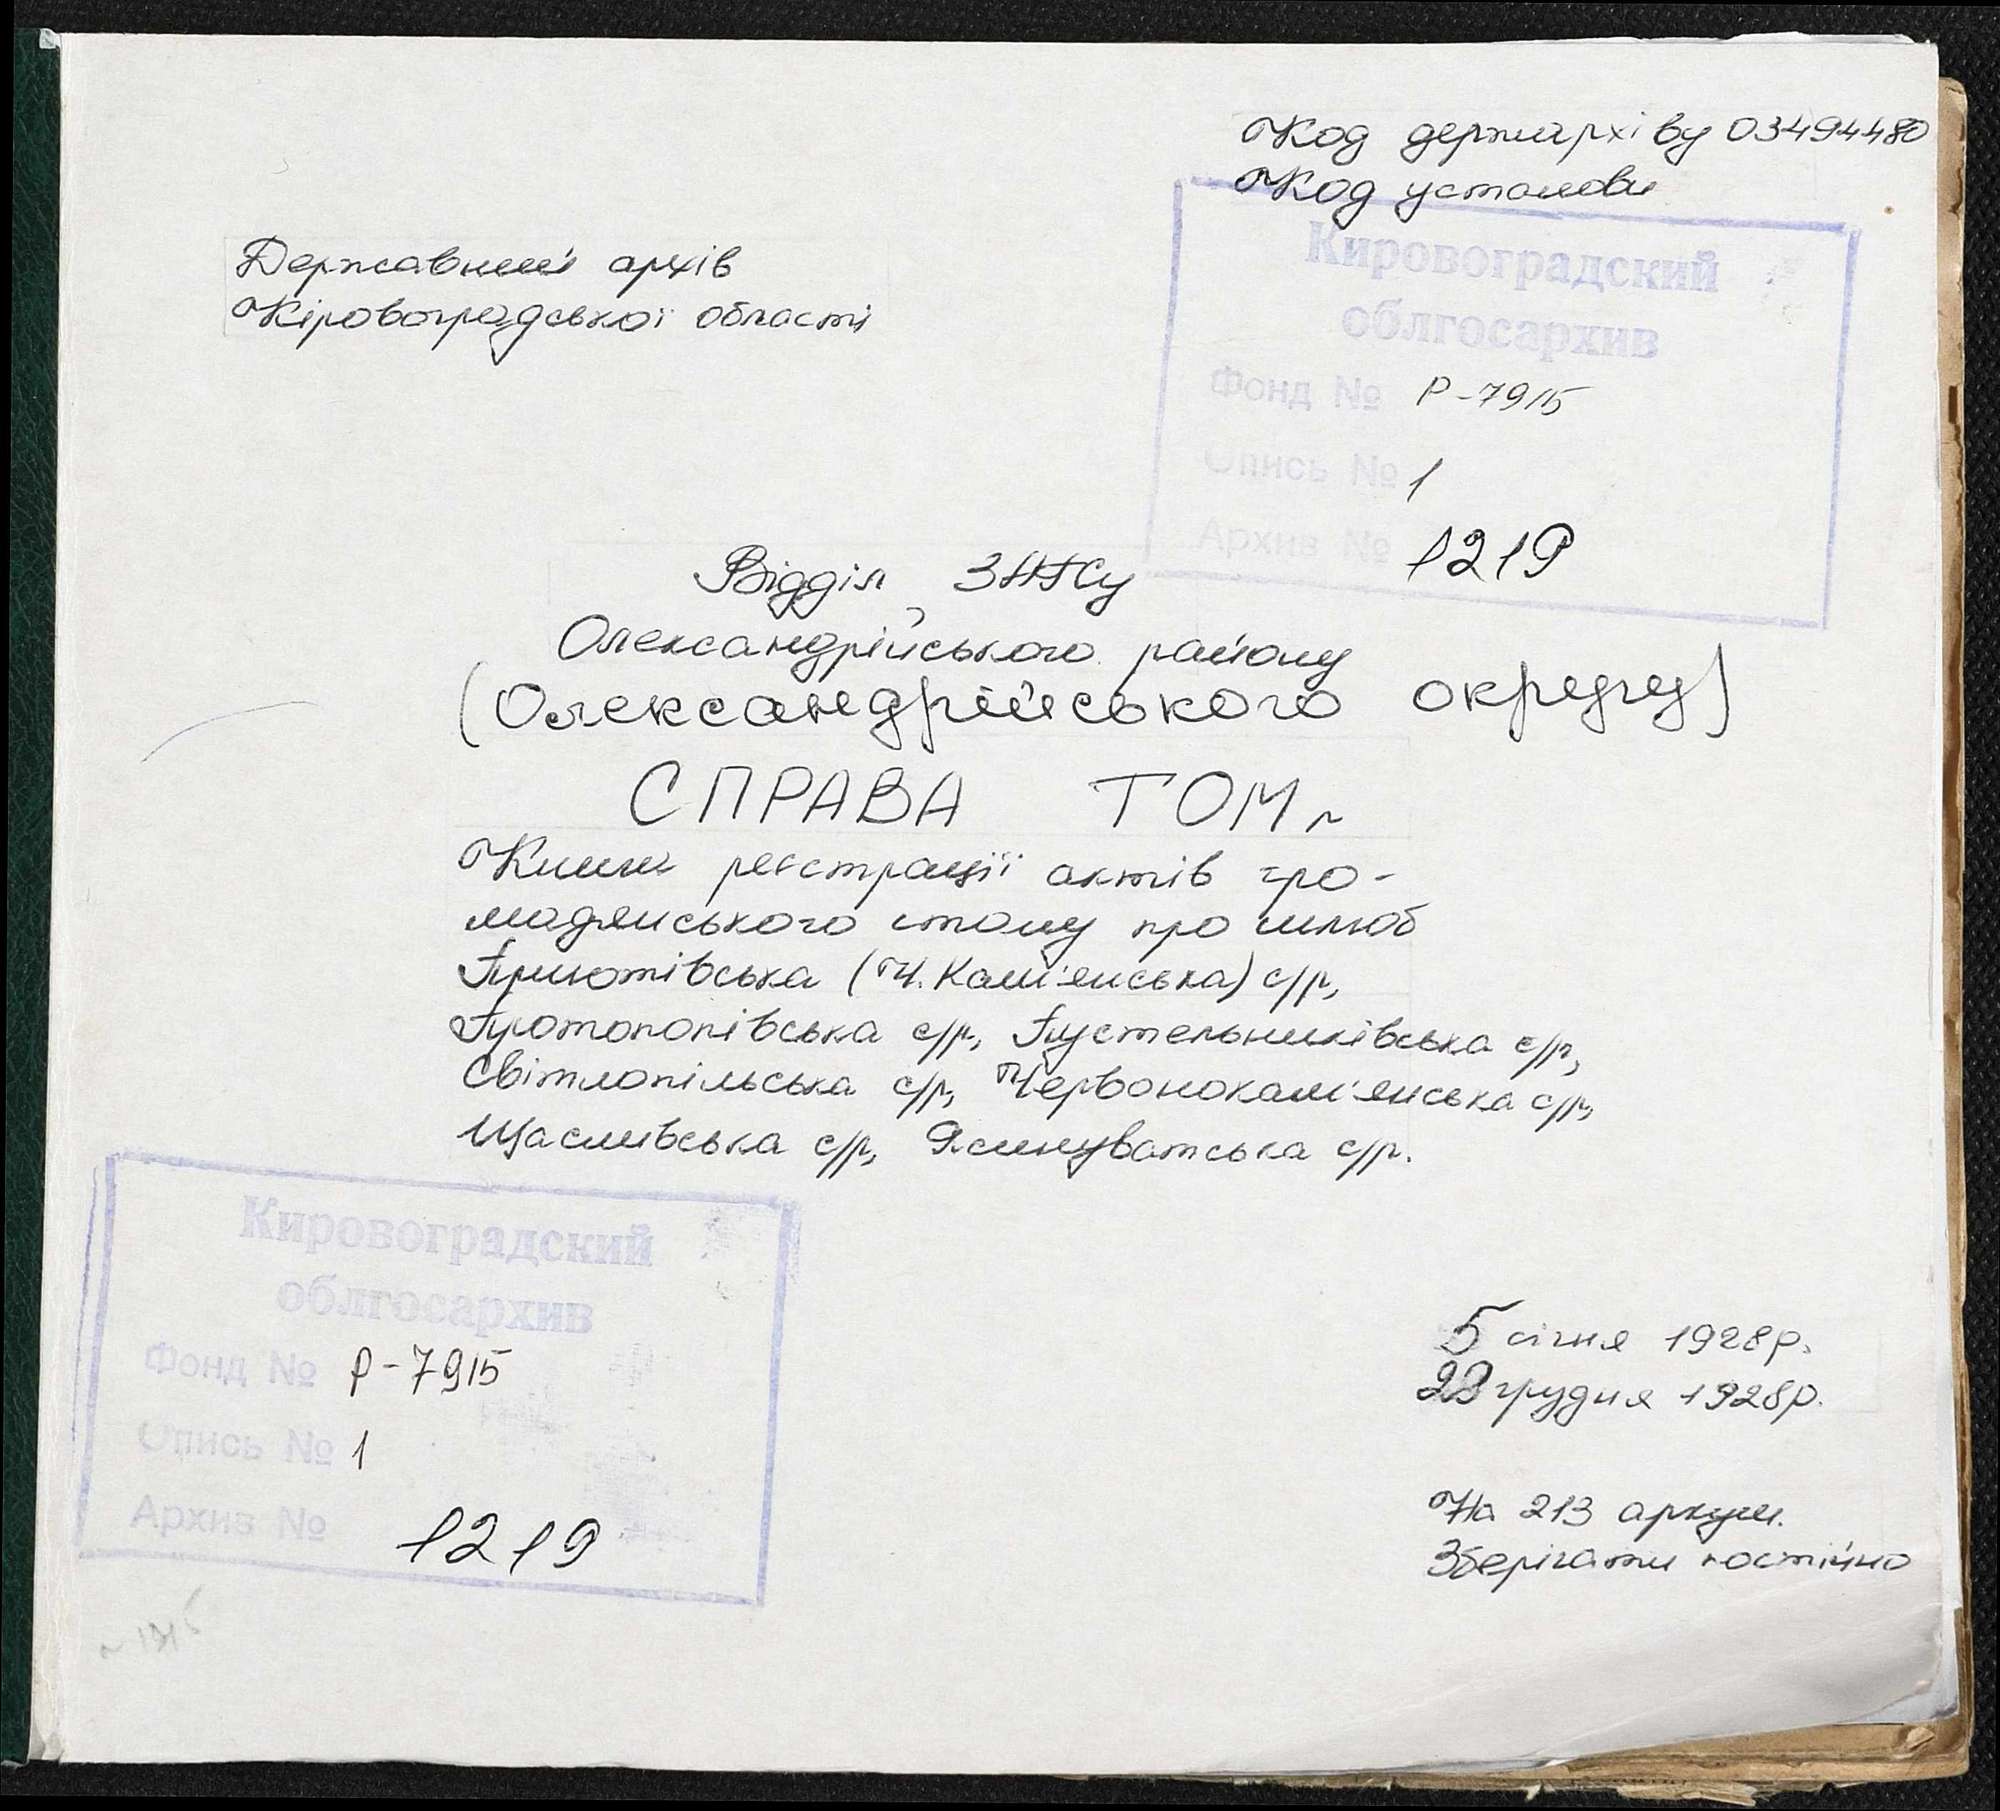 Код держархіву 03494480
Код установи
Державний архів
Кіровоградської області
Кировоградский
облгосархив
Фонд № Р-7915
Опись № 1
Архив № 1219
Відділ ЗАГСу
Олександрійського району
(Олександрійського округу)
СПРАВА ТОМ
Книги реєстрації актів гро-
мадянського стану про шлюб
Приютівська (Ч. Кам'янська) с/р,
Протопопівська с/р, Пустельниківська с/р,
Світлопільська с/р, Червонокам'янська с/р,
Щасливська с/р, Ясинуватська с/р.
Кировоградский
облгосархив
Фонд № Р-7915
Опись № 1
Архив № 1219
5 січня 1928р.
29 грудня 1928р.
На 213 аркуш.
Зберігати постійно